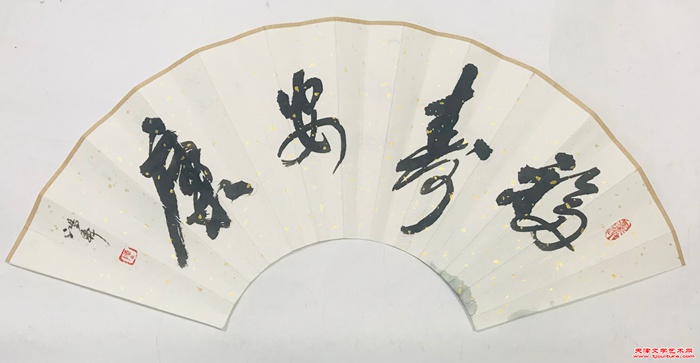 福寿安康
天津文学艺术网
www.tjculture.com